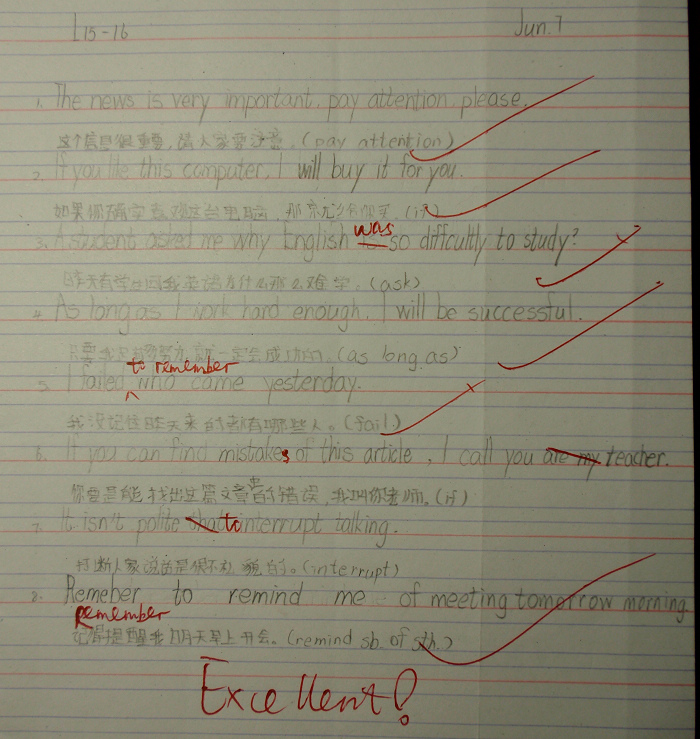 L15-16 Jun.7
1. The news is very important, pay attention please.
这个信息很重要,请大家要注意。(pay attention)
2. If you like this computer, I will buy it for you.
如果你确实喜欢这台电脑, 那我就给你买。(if)
was
3. A student asked me why English is so diffcultly to study?
昨天有学生问我英语为什么那么难学。(ask)
4. As long as I work hard enough, I will be successful.
只要我足够努力,就一定会成功的。(as long as)
to remember
5. I failed who came yesterday.
我没记住昨天来的都有哪些人。(fail)
6. If you can find mistakes of this article, I call you are my teacher.
你要是能找出这篇文章中的错误,我叫你老师。(if)
7. It isn't polite that to interrupt talking.
打断人家说话是很不礼貌的。(interrupt)
8. Remeber to remind me of meeting tomorrow morning
Remember
记得提醒我明天早上开会。(remind sb. of sth.)
Excellent!